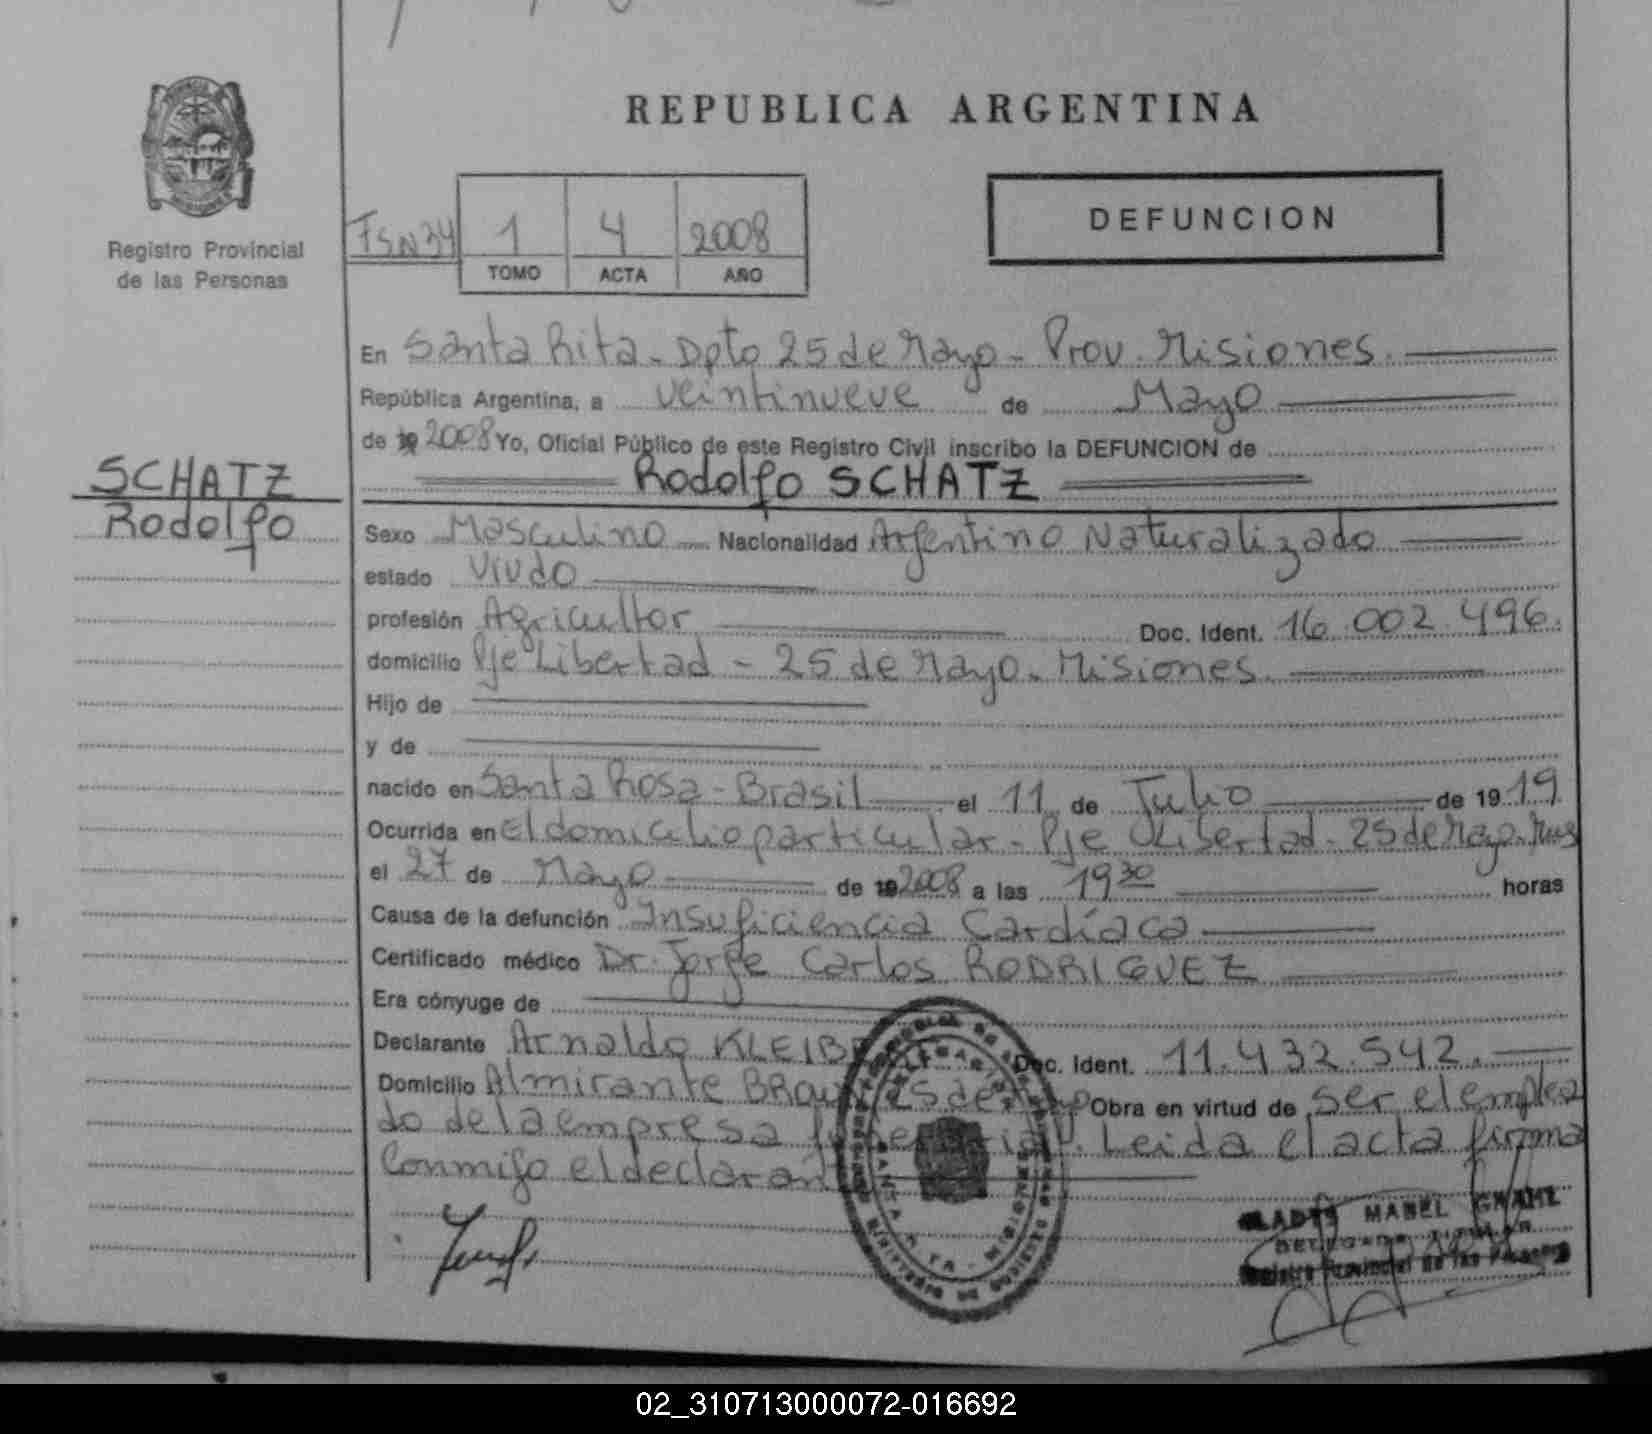 REPUBLICA ARGENTINA
Registro Provincial
de las Personas
FSN34
1 4 2008
TOMO ACTA AÑO
DEFUNCION
En Santa Rita - Dpto 25 de Mayo - Prov. Misiones.
República Argentina, a veintinueve de Mayo
de 19 2008 Yo, Oficial Público de este Registro Civil inscribo la DEFUNCION de
Rodolfo SCHATZ
SCHATZ
Rodolfo
Sexo Masculino Nacionalidad Argentino Naturalizado
estado Viudo
profesión Agricultor Doc. Ident. 16.002.496.
domicilio Pje Libertad - 25 de Mayo - Misiones.
Hijo de
y de
nacido en Santa Rosa - Brasil el 11 de Julio de 19 19
Ocurrida en El domicilio particular - Pje Libertad - 25 de Mayo -
el 27 de Mayo de 19 2008 a las 19 30 horas
Causa de la defunción Insuficiencia Cardíaca
Certificado médico Dr. Jorge Carlos RODRIGUEZ
Era cónyuge de
Declarante Arnaldo Doc. Ident. 11.432.542.
Domicilio Almirante Obra en virtud de ser el emplea
do de la empresa Leida el acta firma
Conmigo el
MABEL
02_310713000072-016692